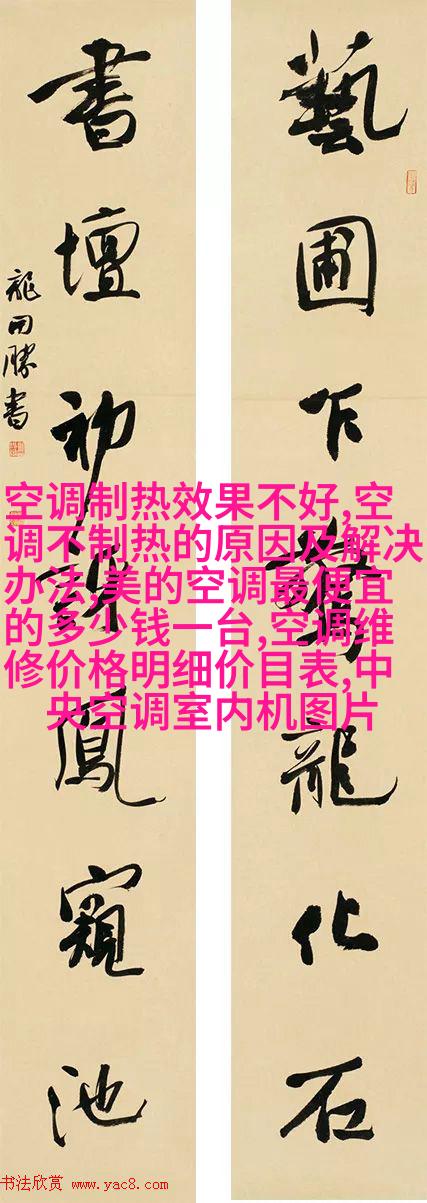 藝圃乍驚龍化石
書壇初鳳窺池
龍開勝書
空调制热效果不好,空
调不制热的原因及解决
办法,美的空调最便宜
的多少钱一台,空调维
修价格明细价目表,中
央空调室内机图片
书法欣赏 www.yac8.com